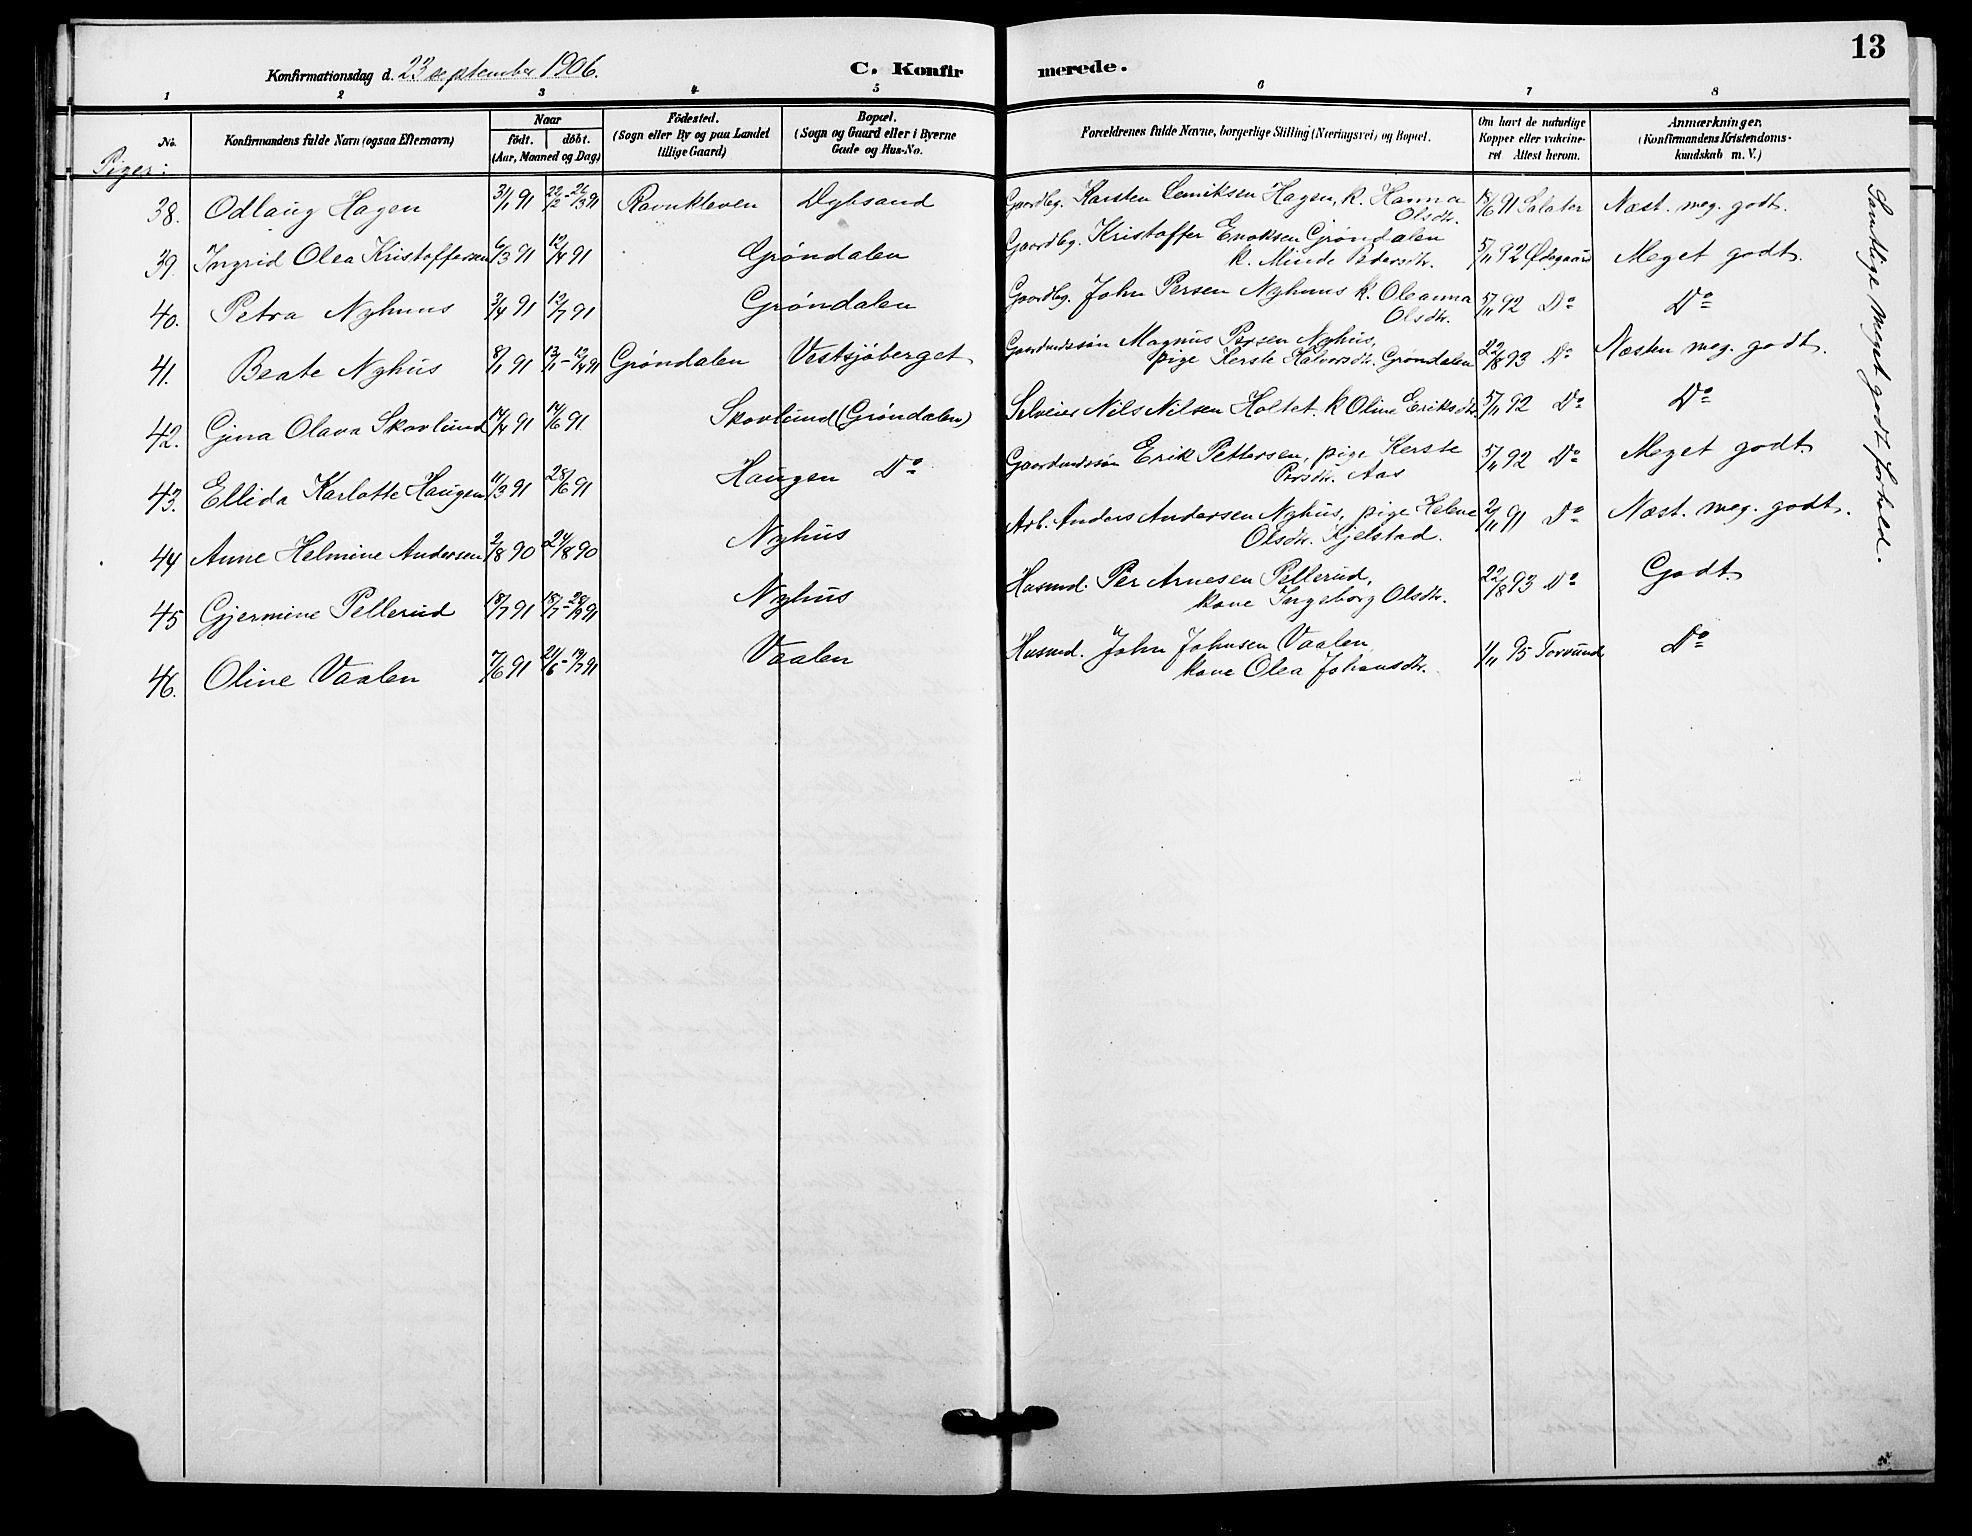 13
Konfirmationsdag d. 23 september 1906.
C. Konfirmerede.
1 2 3 4 5 6 7 8
No.
Konfirmandens fulde Navn (ogsaa Efternavn)
Naar
födt. döbt.
(Aar, Maaned og Dag)
Födested.
(Sogn eller By og paa Landet
tillige Gaard)
Bopæl.
(Sogn og Gaard eller i Byerne
Gade og Hus-No.
Forældrenes fulde Navne, borgerlige Stilling (Næringsvei) og Bopæl.
Om havt de naturlige
Kopper eller vakcine-
ret Attest herom.
Anmærkninger,
(Konfirmandens Kristendoms-
kundskab m. V.)
Piger:
38. Odlaug Hagen 31/1 91 22/2 - 26/3 91 Ravnkleven Dybsand Gaardbg. Karsten Hagen, k. Hanna Olsdtr. 91 Næst. meg. godt.
39. Ingrid Olea Kristoffersen 6/3 91 12/4 91 Grøndalen Gaardbg. Kristoffer Enoksen Grøndalen k. Minde Pedersdtr. 5/11 92 Ødegaard Meget godt.
40. Petra Nyhuus 3/4 91 12/7 91 Grøndalen Gaardbg. John Persen Nyhuus k. Oleanna Olsdtr. 5/11 92 Do Do
41. Beate Nyhus 8/1 91 12/4 91 Grøndalen Vestsjøberget Gaardmdssøn Magnus Persen Nyhus, pige Kerste Halvorsdtr. Grøndalen 22/8 93 Do Næsten meg. godt.
42. Gina Olava Skovlund 17/4 91 14/6 91 Skovlund (Grøndalen) Selveier Nils Nilsen Holtet. k Oline Eriksdtr. 5/11 92 Do Do
43. Ellida Karlotte Haugen 11/3 91 28/6 91 Haugen Do Gaardmdssøn Erik Pettersen, pige Kerste Persdtr. Aas 5/11 92 Do Meget godt.
44 Anne Helmine Andersen 2/8 90 24/8 90 Nyhus Arb. Anders Andersen Nyhus, pige Helene Olsdtr. Kjelstad. 2/11 91 Do Næst. meg. godt.
45 Gjermine Pellerud 18/7 91 Nyhus Husmd. Per Arnesen Pellerud, kone Ingeborg Olsdtr. 22/8 93 Do Godt.
46. Oline Vaalen 7/6 91 21/6 - 19/7 91 Vaalen Husmd. John Johnsen Vaalen, kone Olea Johansdtr. 1/11 95 Torvund Do
Samtlige meget godt forhold.